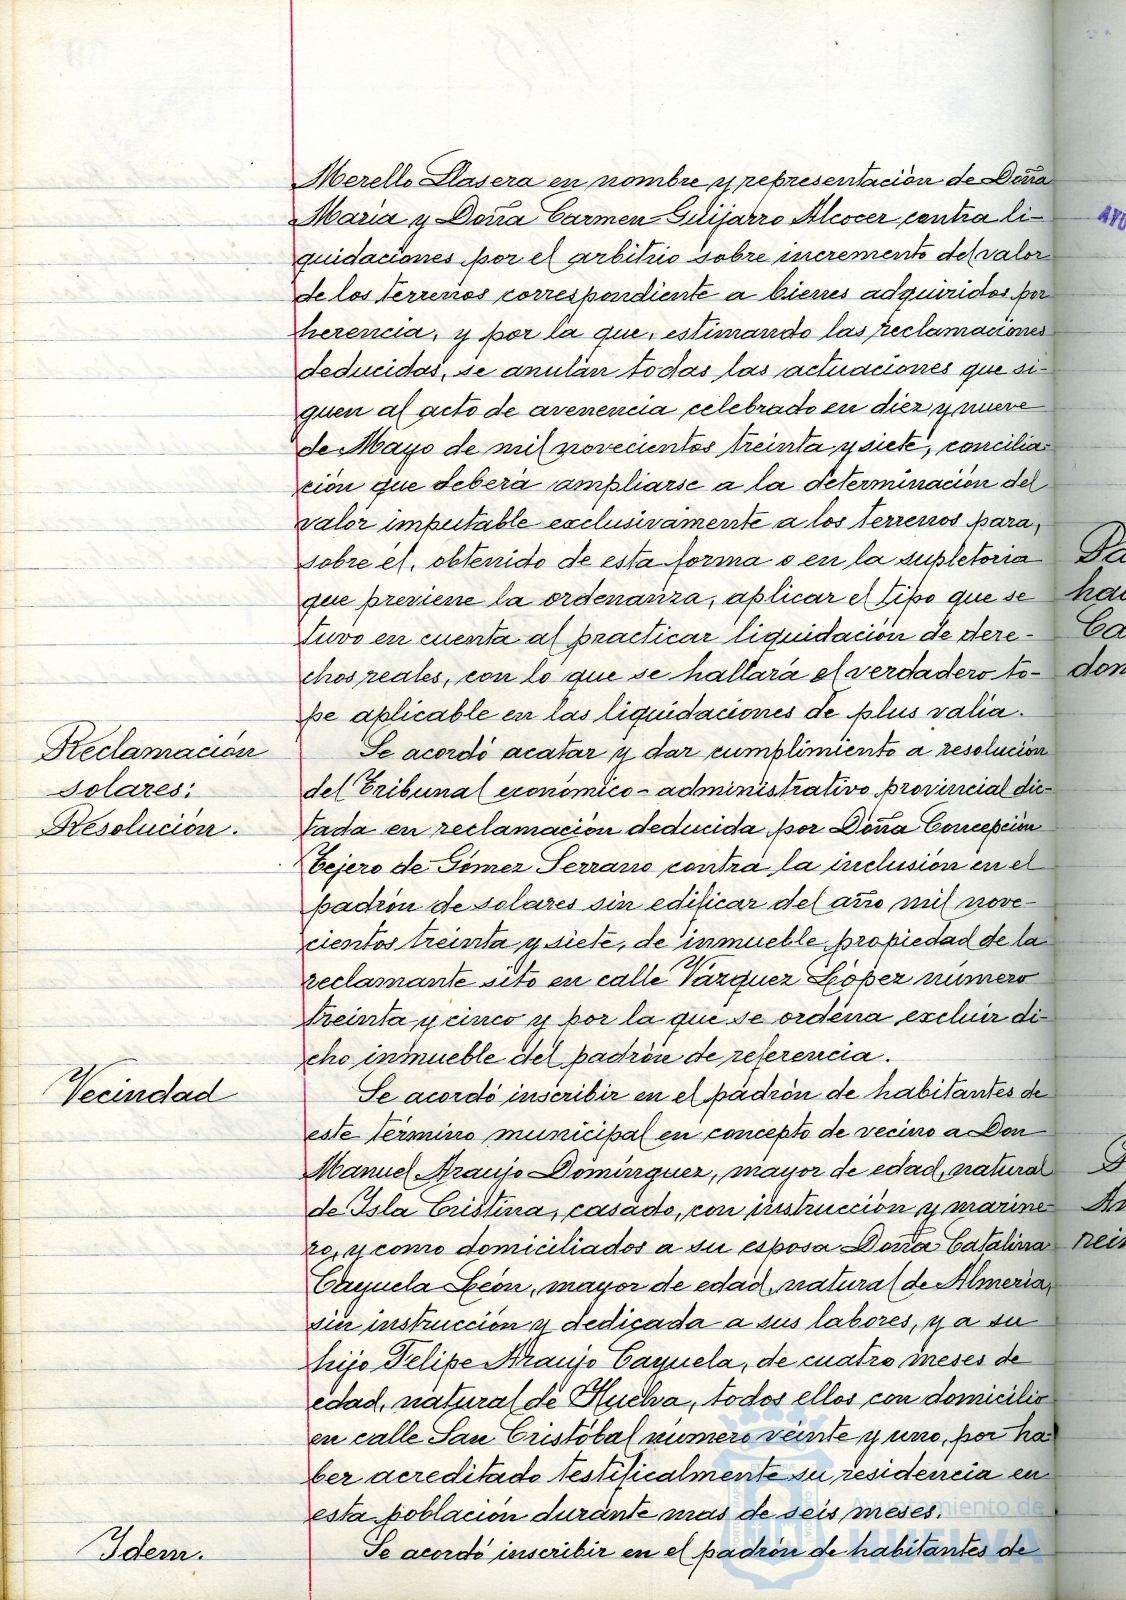 Merello Llasera en nombre y representación de Doña
María y Doña Carmen Guijarro Alcocer contra li-
quidaciones por el arbitrio sobre incremento del valor
de los terrenos correspondiente a bienes adquiridos por
herencia, y por la que, estimando las reclamaciones
deducidas, se anulan todas las actuaciones que si-
guen al acto de avenencia celebrado en diez y nueve
de Mayo de mil novecientos treinta y siete, concilia-
ción que deberá ampliarse a la determinación del
valor imputable exclusivamente a los terrenos para,
sobre él, obtenido de esta forma o en la supletoria
que previene la ordenanza, aplicar el tipo que se
tuvo en cuenta al practicar liquidación de dere-
chos reales, con lo que se hallará el verdadero to-
pe aplicable en las liquidaciones de plus valia.
Reclamación
solares:
Resolución.
Se acordó acatar y dar cumplimiento a resolución
del Tribunal económico-administrativo provincial dic-
tada en reclamación deducida por Doña Concepción
Tejero de Gómez Serrano contra la inclusión en el
padrón de solares sin edificar del año mil nove-
cientos treinta y siete, de inmueble propiedad de la
reclamante sito en calle Vázquez López número
treinta y cinco y por la que se ordena excluir di-
cho inmueble del padrón de referencia.
Vecindad
Se acordó inscribir en el padrón de habitantes de
este término municipal en concepto de vecino a Don
Manuel Araujo Domínguez, mayor de edad, natural
de Isla Cristina, casado, con instrucción y marine-
ro, y como domiciliados a su esposa Doña Catalina
Cayuela León, mayor de edad, natural de Almería,
sin instrucción y dedicada a sus labores, y a su
hijo Felipe Araujo Cayuela, de cuatro meses de
edad, natural de Huelva, todos ellos con domicilio
en calle San Cristóbal número veinte y uno, por ha-
ber acreditado testificalmente su residencia en
esta población durante mas de seis meses.
Idem.
Se acordó inscribir en el padrón de habitantes de
Ayuntamiento de
HUELVA